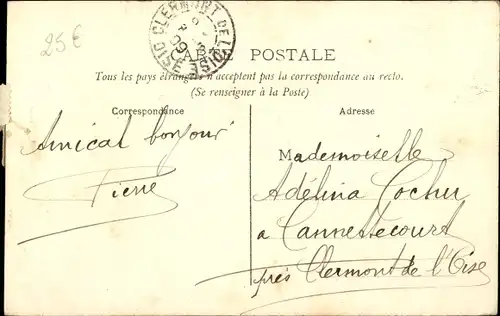 25€
CLERMONT DE L'OISE
OISE
CARTE POSTALE
Tous les pays étrangers n'acceptent pas la correspondance au recto.
(Se renseigner à la Poste)
Correspondance
Adresse
Amical bonjour
Pierre
Mademoiselle
Adélina Cochu
à Cannettecourt
près Clermont de l'Oise